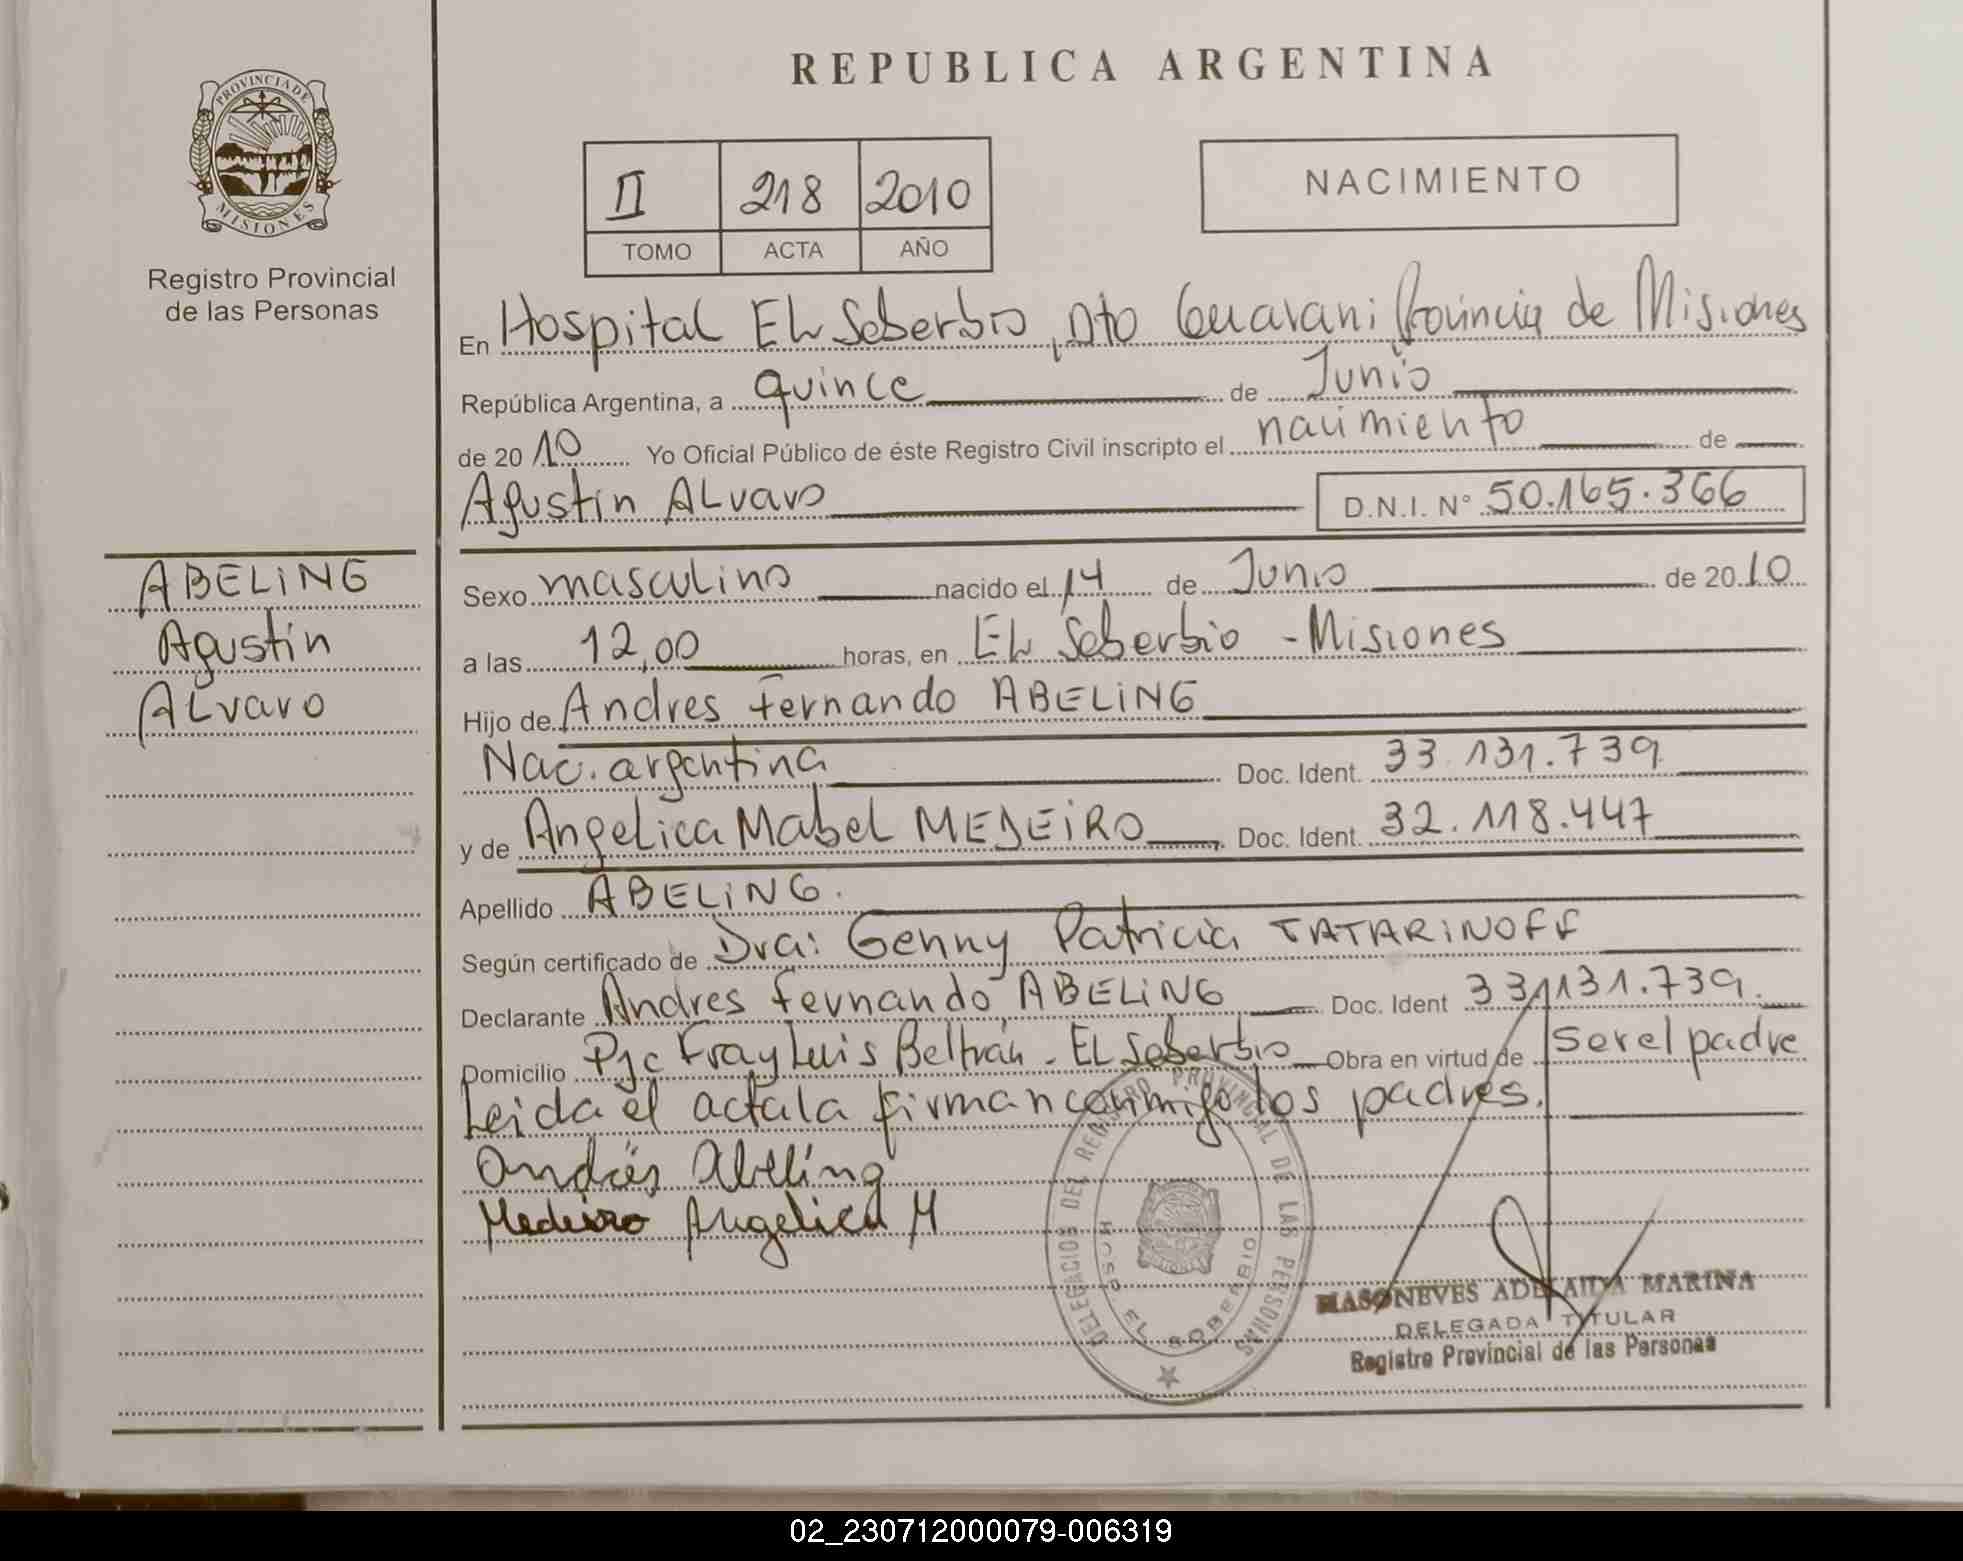 REPUBLICA ARGENTINA
PROVINCIA DE
MISIONES
Registro Provincial
de las Personas
II 218 2010
TOMO ACTA AÑO
NACIMIENTO
En Hospital EL Soberbio, Dto Guarani Provincia de Misiones
República Argentina, a quince de Junio
de 2010 Yo Oficial Público de éste Registro Civil inscripto el nacimiento de
Agustin ALvaro D.N.I. N° 50.165.366
ABELiNG
Agustin
ALvaro
Sexo masculino nacido el 14 de Junio de 2010
a las 12,00 horas, en EL Soberbio - Misiones
Hijo de Andres Fernando ABELiNG
Nac. argentina Doc. Ident. 33.131.739
y de AngeLica MabeL MEDEiRO Doc. Ident. 32.118.447
Apellido ABELiNG.
Según certificado de Dra: Genny Patricia TATARiNOFF
Declarante Andres Fernando ABELiNG Doc. Ident 33.131.739.
Domicilio Pje Fray Luis Beltrán - EL Soberbio Obra en virtud de ser el padre
Leida el acta la firman conmigo los padres.
Andrés Abeling
Medeiro Angelica M
DELEGACION DEL REGISTRO PROVINCIAL DE LAS PERSONAS
HOSP EL SOBERBIO
MASONEVES ADELAIDA MARINA
DELEGADA TITULAR
Registro Provincial de las Personas
02_230712000079-006319